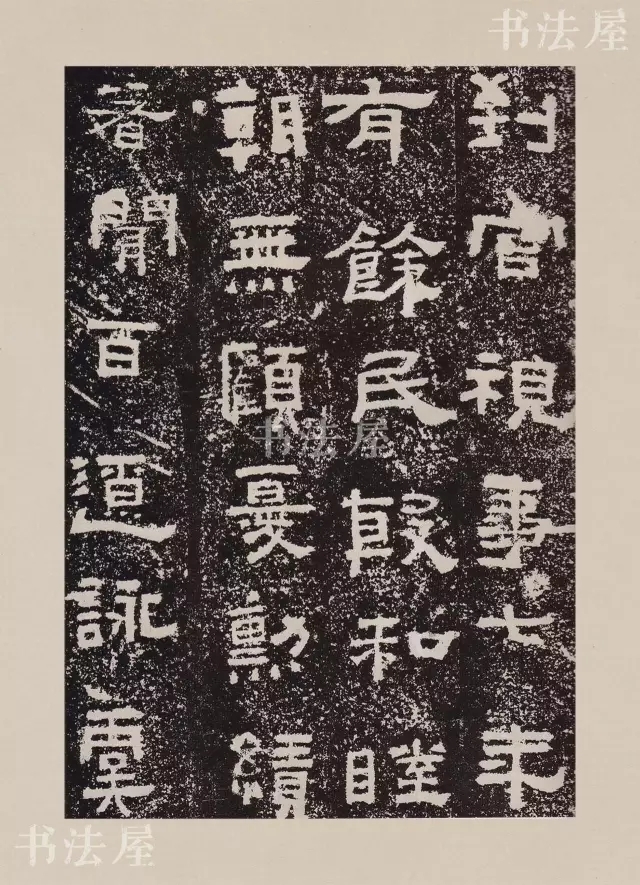 书法屋
到官視事七年
有餘民殷和睦
朝無顧憂勳績
著聞百遼詠虞
书法屋
书法屋